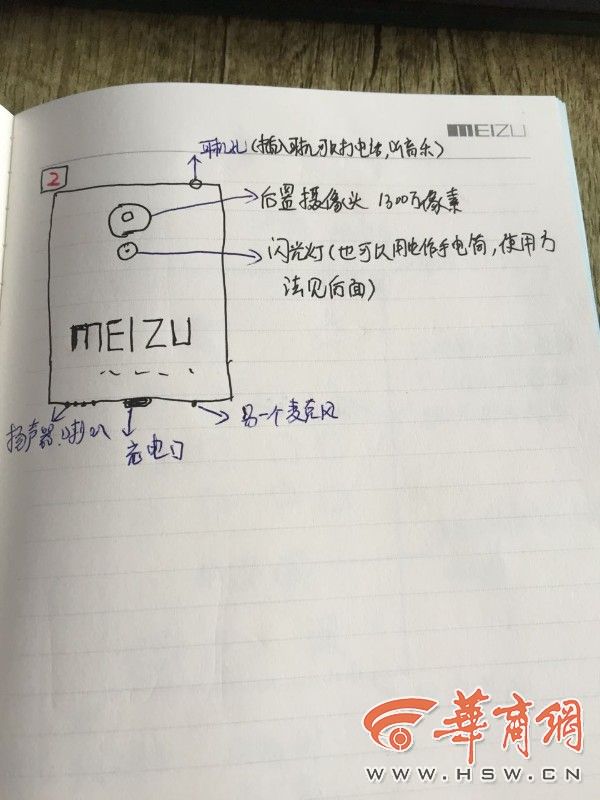 MEIZU
耳机孔(插入耳机可以打电话,听音乐)
2
后置摄像头 1300万像素
闪光灯(也可以用电作手电筒,使用方
法见后面)
MEIZU
扬声器.喇叭
充电口
另一个麦克风
华商网
WWW.HSW.CN